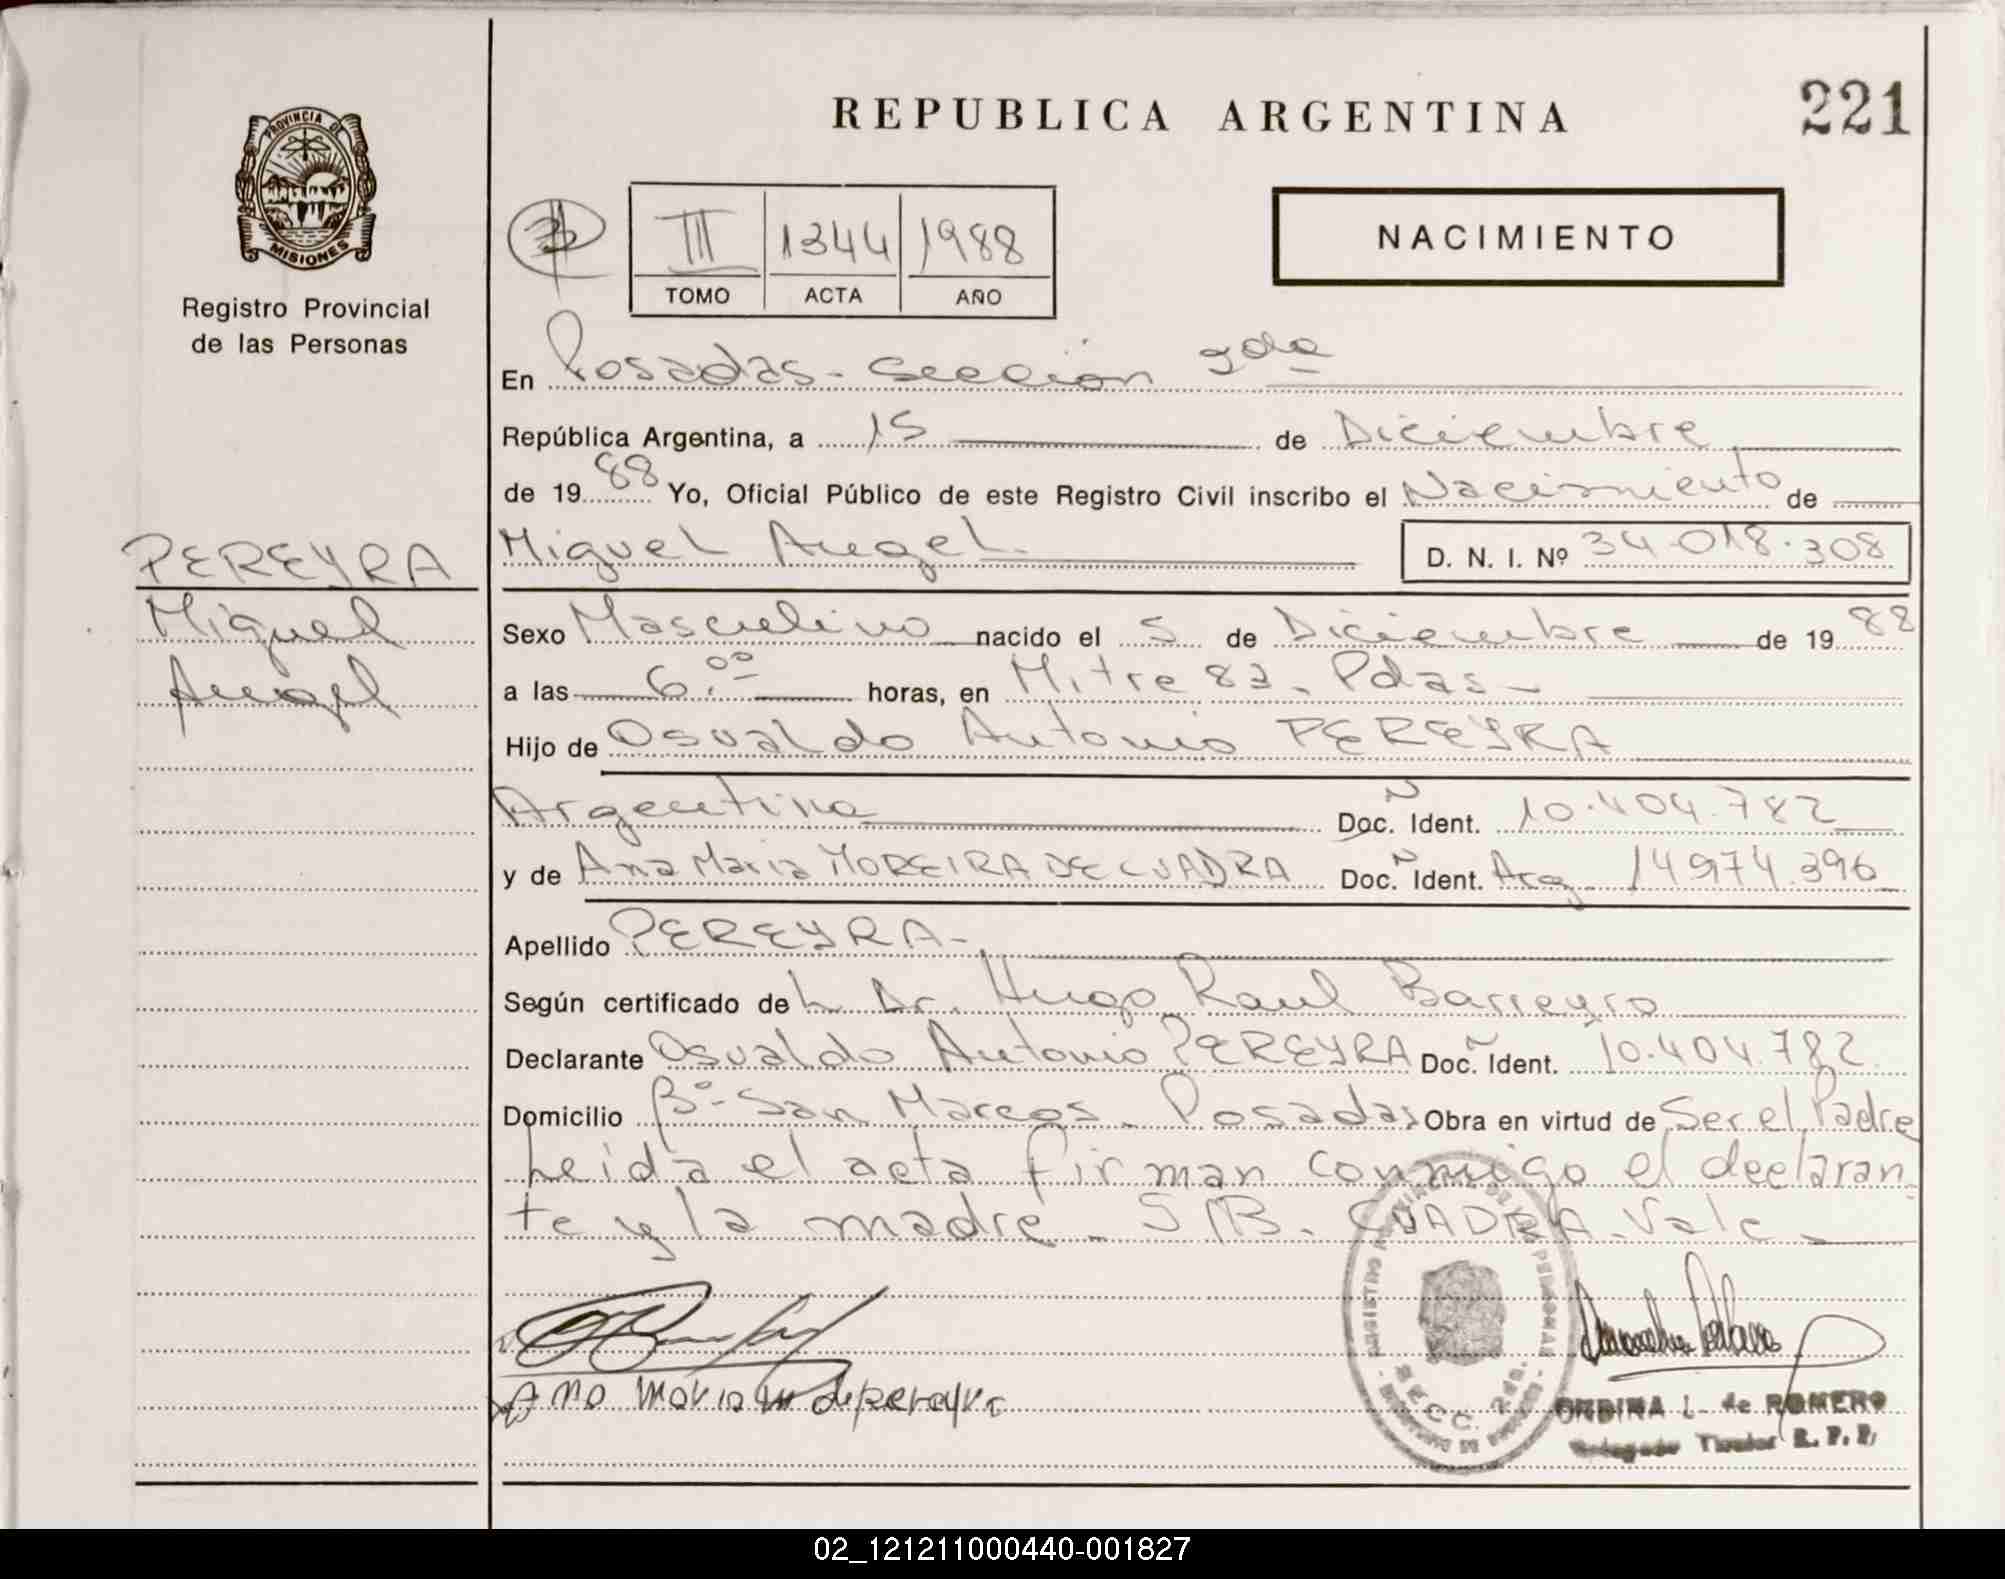 REPUBLICA ARGENTINA
221
PROVINCIA DE
MISIONES
Registro Provincial
de las Personas
III 1344 1988
TOMO ACTA AÑO
NACIMIENTO
En Posadas - Sección 2da
República Argentina, a 15 de Diciembre
de 1988 Yo, Oficial Público de este Registro Civil inscribo el Nacimiento de
PEREYRA
Miguel
Angel
Miguel Angel
D. N. I. Nº 34.018.308
Sexo Masculino nacido el 5 de Diciembre de 1988
a las 6.00 horas, en Mitre 82 - Pdas -
Hijo de Osvaldo Antonio PEREYRA
Argentina Doc. Ident. 10.404.782
y de Ana Maria MOREIRA DE CUADRA Doc. Ident. Arg 14974.396
Apellido PEREYRA -
Según certificado del Dr. Hugo Raul Barreyro
Declarante Osvaldo Antonio PEREYRA Doc. Ident. 10.404.782
Domicilio Bº San Marcos - Posadas Obra en virtud de Ser el Padre
Leida el acta firman conmigo el declaran-
te y la madre - S/B. CUADRA - Vale -
Ana Maria M de pereyra
SECC. 2da.
ONDINA L. de ROMERO
Delegado Titular R. P. P.
02_121211000440-001827